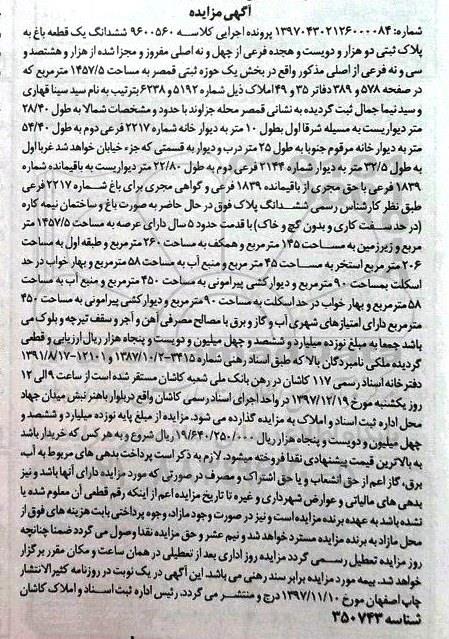 آگهی مزایده
شماره: ۱۳۹۷۰۴۳۰۲۱۲۶۰۰۰۰۸۴ پرونده اجرایی کلاسه ۹۶۰۰۵۶۰ ششدانگ یک قطعه باغ به
پلاک ثبتی دو هزار و دویست و هجده فرعی از چهل و نه اصلی مفروز و مجزا شده از هزار و هشتصد و
سی و نه فرعی از اصلی مذکور واقع در بخش یک حوزه ثبتی قمصر به مساحت ۱۴۵۷/۵ مترمربع که
در صفحه ۵۷۸ و ۳۸۹ دفاتر ۳۵ و ۴۹ املاک ذیل شماره ۵۱۹۲ و ۶۲۳۸ بترتیب به نام سید سینا قهاری
و سید نیما جمال ثبت گردیده به نشانی قمصر محله جزاوند با حدود و مشخصات شمالا به طول ۲۸/۴۰
متر دیواریست به مسیله شرقا اول بطول ۱۰ متر به دیوار خانه شماره ۲۲۱۷ فرعی دوم به طول ۵۴/۴۰
متر به دیوار خانه مرقوم جنوبا به طول ۲۵ متر درب و دیوار به قسمتی که جزء خیابان خواهد شد غربا اول
به طول ۳۲/۵ متر به دیوار شماره ۲۱۴۴ فرعی دوم به طول ۲۲/۸۰ متر دیواریست به باقیمانده شماره
۱۸۳۹ فرعی با حق مجری از باقیمانده ۱۸۳۹ فرعی و گواهی مجری برای باغ شماره ۲۲۱۷ فرعی
طبق نظر کارشناس رسمی ششدانگ پلاک فوق در حال حاضر به صورت باغ و ساختمان نیمه کاره
(در حد سفت کاری و بدون گچ و خاک) با قدمت حدود ۵ سال دارای عرصه به مساحت ۱۴۵۷/۵ متر
مربع و زیرزمین به مساحت ۱۴۵ مترمربع و همکف به مساحت ۲۶۰ مترمربع و طبقه اول به مساحت
۲۰۶ مترمربع استخر به مساحت ۴۵ متر مربع و منبع آب به مساحت ۵۸ مترمربع و بهار خواب در حد
اسکلت بمساحت ۹۰ مترمربع و دیوار کشی پیرامونی به مساحت ۴۵۰ مترمربع و منبع آب به مساحت
۵۸ مترمربع و بهار خواب در حد اسکلت به مساحت ۹۰ مترمربع و دیوار کشی پیرامونی به مساحت ۴۵۰
مترمربع دارای امتیازهای شهری آب و گاز و برق با مصالح مصرفی آهن و آجر و سقف تیرچه و بلوک می
باشد جمعا به مبلغ نوزده میلیارد و ششصد و چهل میلیون و دویست و پنجاه هزار ریال ارزیابی و قطعی
گردیده ملکی نامبردگان بالا که طبق اسناد رهنی شماره ۳۴۱۵-۱۳۸۷/۱۰/۲ و ۱۲۱۰۱-۱۳۹۱/۸/۱۷
دفترخانه اسناد رسمی ۱۱۷ کاشان در رهن بانک ملی شعبه کاشان مستقر شده است از ساعت ۹ الی ۱۲
روز یکشنبه مورخ ۱۳۹۷/۱۲/۱۹ در واحد اجرای اسناد رسمی کاشان واقع در بلوار باهنر نبش میدان جهاد
محل اداره ثبت اسناد و املاک به مزایده گذارده می شود. مزایده از مبلغ پایه نوزده میلیارد و ششصد و
چهل میلیون و دویست و پنجاه هزار ریال ۱۹/۶۴۰/۲۵۰/۰۰۰ ریال شروع و به هر کس که خریدار باشد
به بالاترین قیمت پیشنهادی نقدا فروخته میشود. لازم به ذکر است پرداخت بدهی های مربوط به آب،
برق، گاز اعم از حق انشعاب و یا حق اشتراک و مصرف در صورتی که مورد مزایده دارای آنها باشد و نیز
بدهی های مالیاتی و عوارض شهرداری و غیره تا تاریخ مزایده اعم از اینکه رقم قطعی آن معلوم شده یا
نشده باشد به عهده برنده مزایده است و نیز در صورت وجود مازاد، وجوه پرداختی بابت هزینه های فوق از
محل مازاد به برنده مزایده مسترد خواهد شد و نیم عشر و حق مزایده نقدا وصول می گردد ضمنا چنانچه
روز مزایده تعطیل رسمی گردد مزایده روز اداری بعد از تعطیلی در همان ساعت و مکان مقرر برگزار
خواهد شد. بیمه مورد مزایده برابر سند رهنی می باشد. این آگهی در یک نوبت در روزنامه کثیرالانتشار
چاپ اصفهان مورخ ۱۳۹۷/۱۱/۱۰ درج و منتشر می گردد. رئیس اداره ثبت اسناد و املاک کاشان
شناسه ۳۵۰۷۴۳